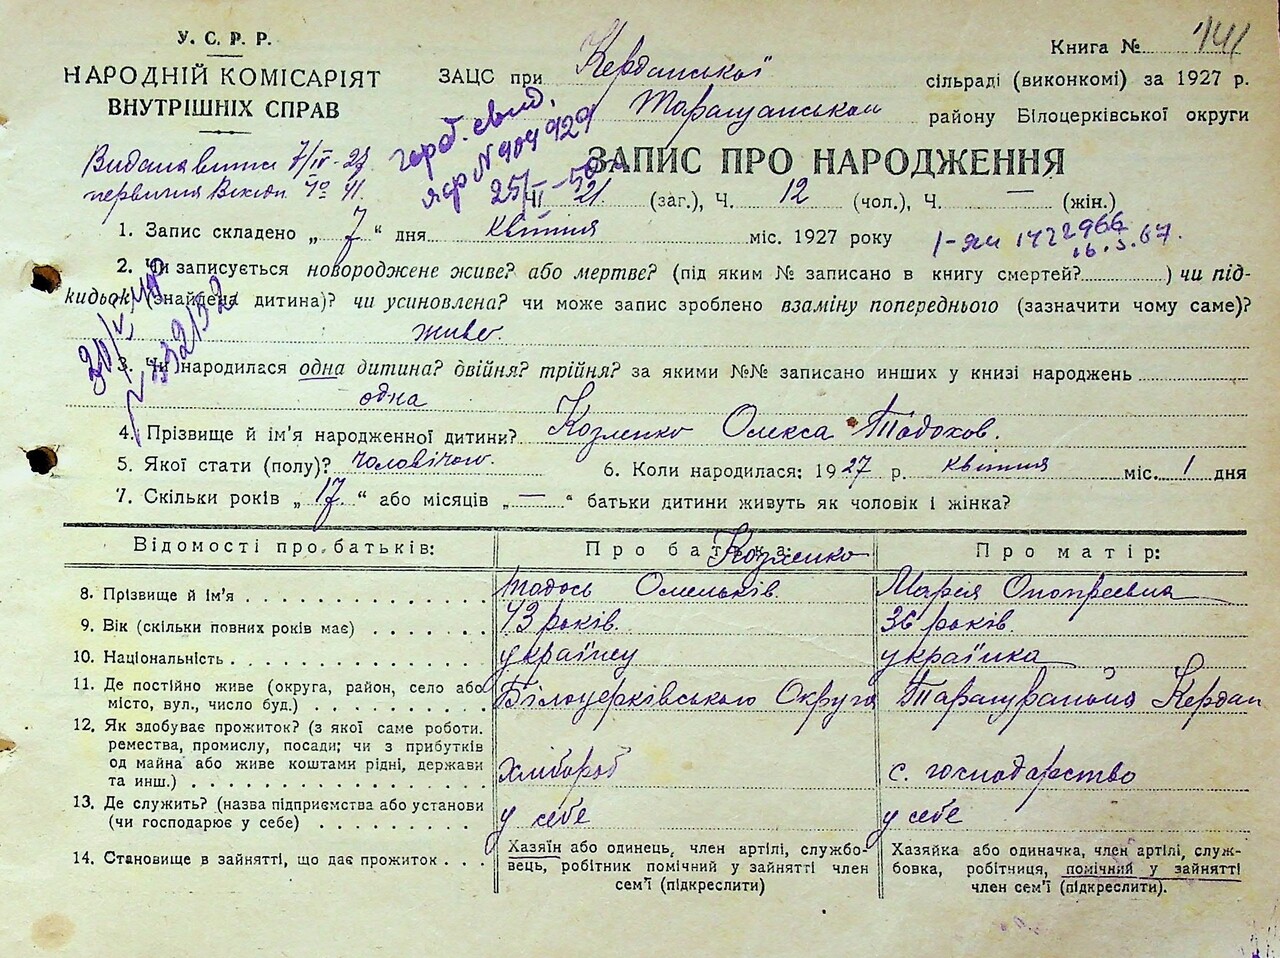 У. С. Р. Р.
НАРОДНІЙ КОМІСАРІЯТ
ВНУТРІШНІХ СПРАВ
Книга № 141
ЗАЦС при Керданської сільраді (виконкомі) за 1927 р.
Таращанськом району Білоцерківської округи
герб. свид.
25/II-50
Видана 7/IV-27
ЗАПИС ПРО НАРОДЖЕННЯ
21 (заг.), Ч. 12 (чол.), Ч. — (жін.)
1. Запис складено „ 7 “ дня квітня міс. 1927 року
1-ям 1422966
16.3.67.
2. Чи записується новороджене живе? або мертве? (під яким № записано в книгу смертей?) чи під-
кидьок (знайдена дитина)? чи усиновлена? чи може запис зроблено взаміну попереднього (зазначити чому саме)?
живе.
3. Чи народилася одна дитина? двійня? трійня? за якими №№ записано инших у книзі народжень
одна
4. Прізвище й ім'я народженної дитини? Козленко Олекса Тодохов.
5. Якої стати (полу)? чоловічою. 6. Коли народилася: 1927 р. квітня міс. 1 дня
7. Скільки років „ 17 “ або місяців „ — “ батьки дитини живуть як чоловік і жінка?
Відомості про батьків: Про батька: Про матір:
Козленко
8. Прізвище й ім'я Тодось Омельків. Марія Онопреевна
9. Вік (скільки повних років має) 43 років. 36 років.
10. Національність українец українка
11. Де постійно живе (округа, район, село або
місто, вул., число буд.) Білоцерківського Округа Кердан
12. Як здобуває прожиток? (з якої саме роботи.
ремества, промислу, посади; чи з прибутків
од майна або живе коштами рідні, держави
та инш.) хлібороб с. господарство
13. Де служить? (назва підприємства або установи
(чи господарює у себе) у себе у себе
14. Становище в зайнятті, що дає прожиток
Хазяїн або одинець, член артілі, службо-
вець, робітник помічний у зайнятті член
сем'ї (підкреслити)
Хазяйка або одиначка, член артілі, служ-
бовка, робітниця, помічний у зайнятті
член сем'ї (підкреслити).